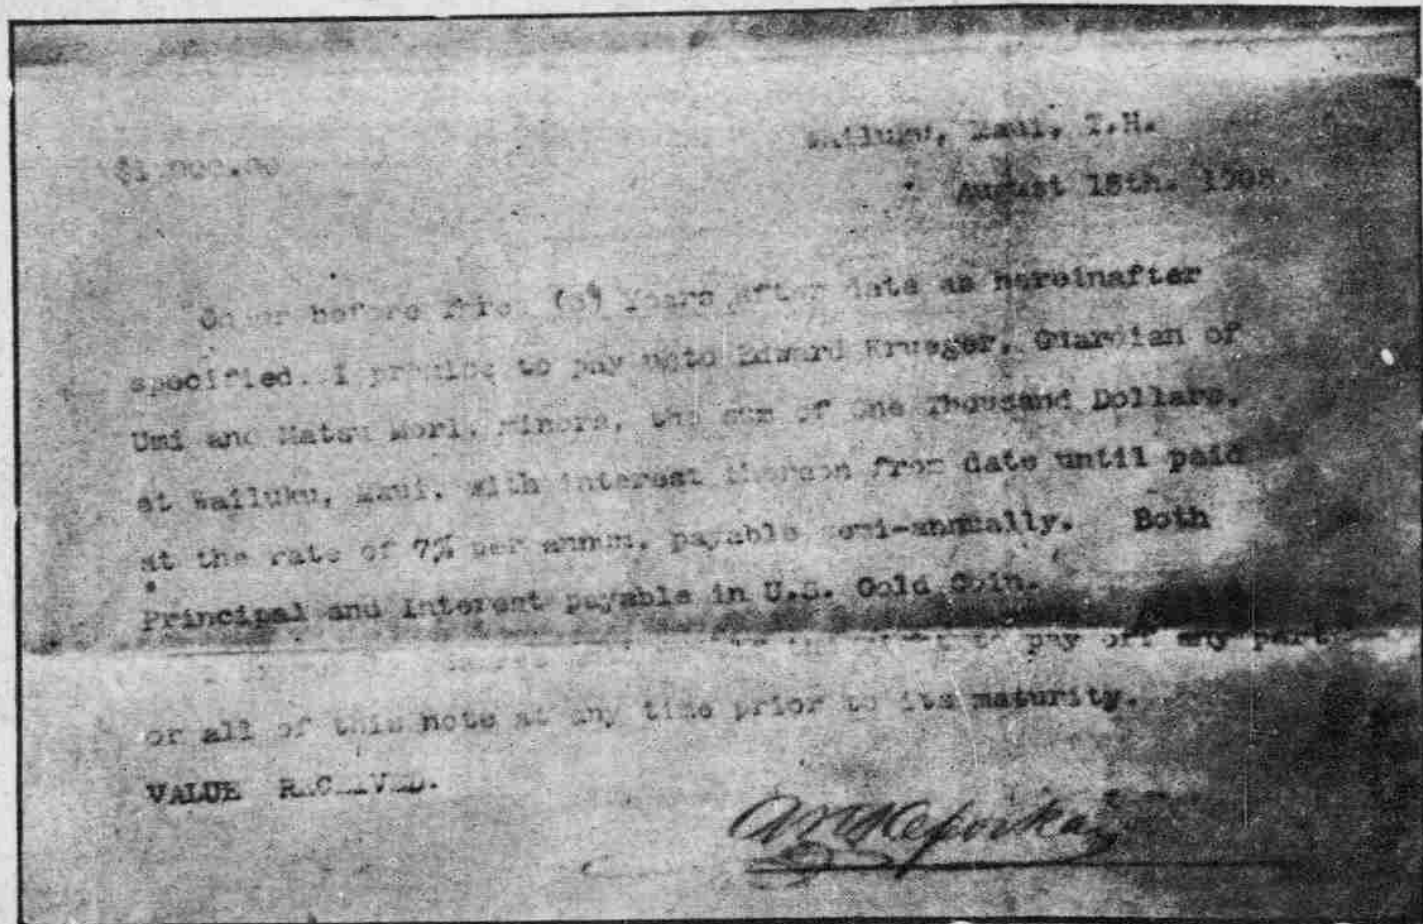 $1,000.00
Wailuku, Maui, T.H.
August 18th. 190
On or before Five (5) Years after date as hereinafter
specified. I promise to pay unto Edward Krueger, Guardian of
Umi and Matsu Mori, minors, the sum of One Thousand Dollars,
at Wailuku, Maui, with interest thereon from date until paid
at the rate of 7% per annum, payable semi-annually. Both
Principal and Interest payable in U.S. Gold Coin.
to pay off any part
or all of this note at any time prior to its maturity.
VALUE RECEIVED.